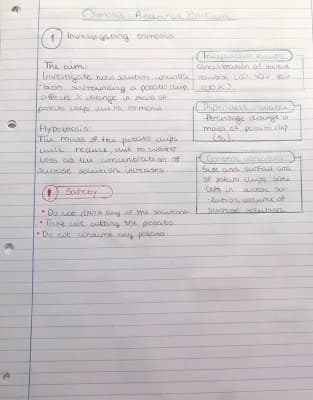 Osmosis - Required Practical
1 Investigating osmosis
The aim:
Investigate how solution concentra-
tion surrounding a potato chip
affects % change in mass of
potato chip due to osmosis.
Hypothesis:
The mass of the potato chips
will reduce, due to water
loss as the concentration of
sucrose solution increases
! Safety
• Do not drink any of the solutions
• Take care cutting the potato
• Do not consume any potato
Independent variable
Concentration of sucrose
solution (0%,
100%)
Dependent variable
Percentage change in
mass of potato chip
(%)
Control variables
Size and surface area
of potato chips, time
left in sucrose so-
lution, volume of
sucrose solution